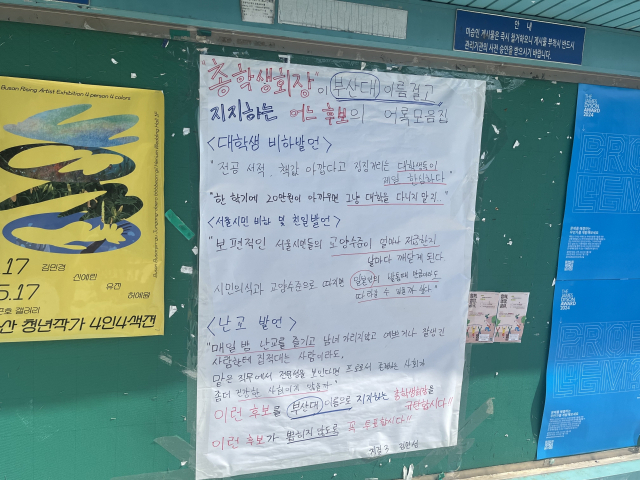 안 내
미승인 게시물은 즉시 철거되오니 게시물 부착시 반드시
관리기관의 사전 승인을 받으시기 바랍니다.
"총학생회장"이 부산대 이름 걸고
지지하는 어느 후보의 어록모음집
<대학생 비하발언>
"전공 서적, 책값 아깝다고 징징거리는 대학생들이
제일 한심하다"
"한 학기에 20만원이 아까우면 그냥 대학을 다니지 말기"
<서울시민 비하 및 친일발언>
"보편적인 서울시민들의 교양수준이 얼마나 저급한지
날마다 깨닫게 된다
시민의식과 교양수준으로 따지면 일본인의 발톱때 만큼이라도
따라갈 수 있을까 싶다"
<난교 발언>
"매일 밤 난교를 즐기고 남녀 가리지않고 예쁘거나 잘생긴
사람한테 집적대는 사람이라도,
맡은 직무에서 전문성을 보인다면 프로로서 존재하는 사회가
좀더 건강한 사회이지 않을까"
이런 후보를 부산대 이름으로 지지하는 총학생회장을
규탄합시다!!
이런 후보가 뽑히지 않도록 꼭 투표합시다!!
Busan Rising Artist Exhibition 4 person 4 colors
17 김민경
신예린
5.17 유진
허예원
산 청년작가 4인4색전
THE
JAMES
DYSON
AWARD
2024
THE
JAMES
DYSON
AWARD
2024